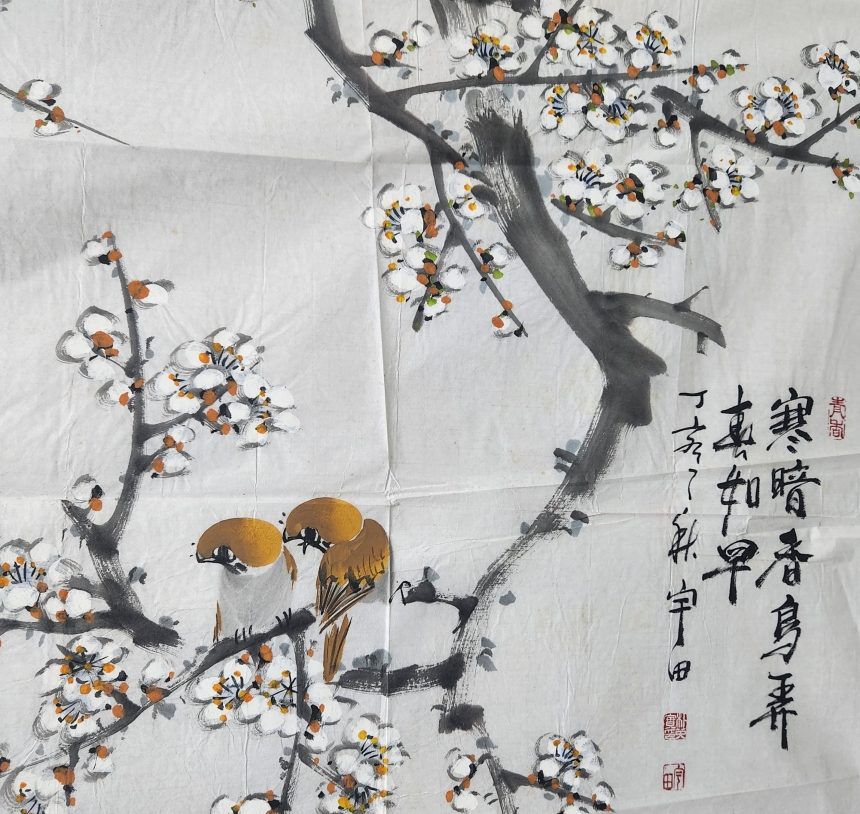 寒暗香鸟弄
春如早
丁亥之秋宇田
宇田